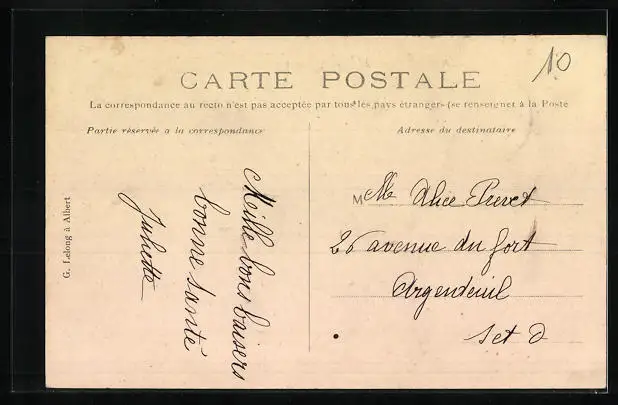 10
CARTE POSTALE
La correspondance au recto n'est pas acceptée par tous les pays étrangers (se renseigner à la Poste
Partie réservée a la correspondance
Adresse du destinataire
G. Lelong à Albert
Mille bons baisers
bonne santé
Juliette
M Alice
26 avenue du fort
Argenteuil
S et O